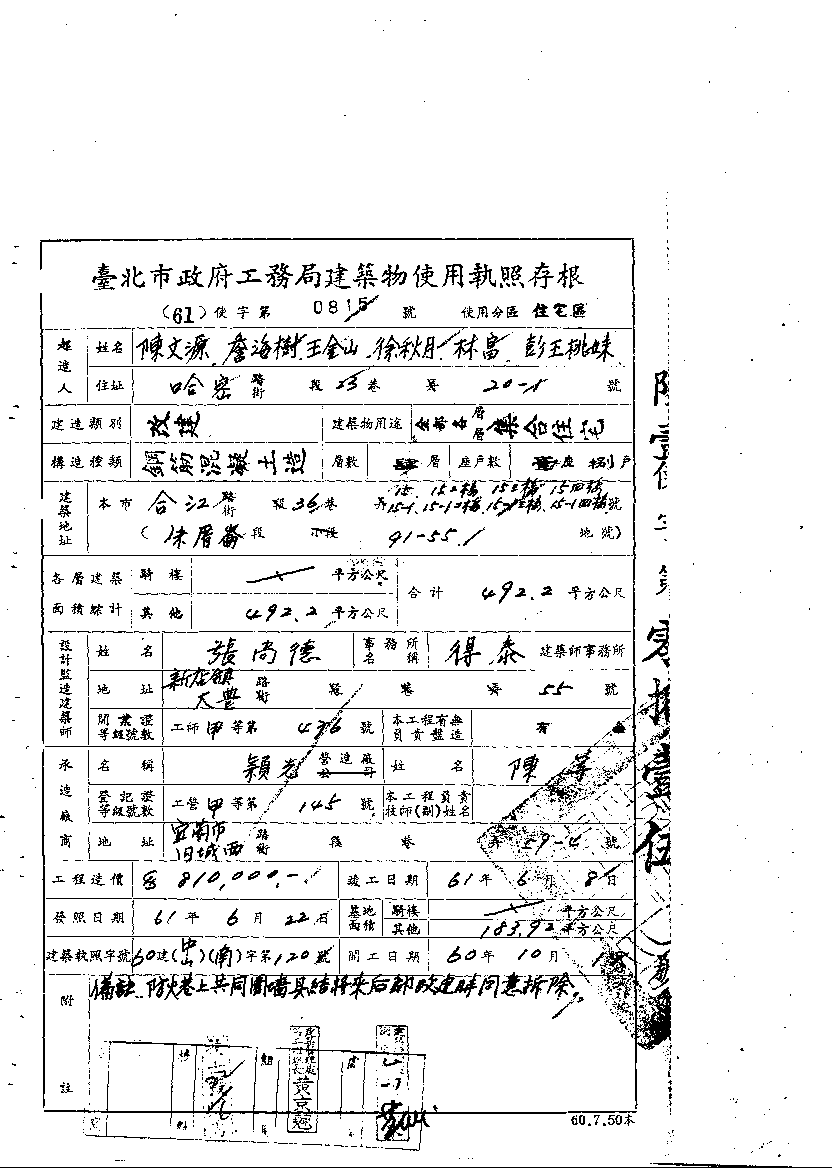 臺北市政府工務局建築物使用執照存根
(61)使字第 0815 號 使用分區 住宅區
起造人 姓名 陳文源 詹海樹 王金山 徐秋月 林富 彭王桃妹
住址 哈密 路街 段 23 巷 弄 20-1 號
建造類別 改建 建築物用途 全部各層層 集合住宅
構造種類 鋼筋混凝土造 層數 肆 層 座戶數 壹座 捌戶
15. 15二樓 15三樓 15四樓
建築地址 本市 合江 路街 段 36 巷 弄 15-1. 15-1二樓 15-1三樓 15-1四樓 號
(朱厝崙 段 小段 91-55.1 地號)
各層建築面積綜計 騎樓 平方公尺 合計 492.2 平方公尺
其他 492.2 平方公尺
設計監造建築師 姓名 張尚德 事務所名稱 得泰 建築師事務所
地址 新店鎮大豐 路街 段 巷 弄 55 號
開業證等級號數 工師 甲 等第 476 號 本工程有無負責監造 有
承造廠商 名稱 營造廠公司 姓名 陳
登記證等級號數 工營 甲 等第 145 號 本工程負責技師(副)姓名
地址 宜蘭市旧城西 路街 段 巷 弄 59-4 號
工程造價 810,000.- 竣工日期 61 年 6 月 8 日
發照日期 61 年 6 月 22 日 基地面積 騎樓 平方公尺
其他 183.92 平方公尺
建築執照字號 60建(中山)(南)字第120號 開工日期 60 年 10 月 1
附註 備註 防火巷上共同圍墻具結將來后鄰改建時同意拆除
黃京
60.7.50本